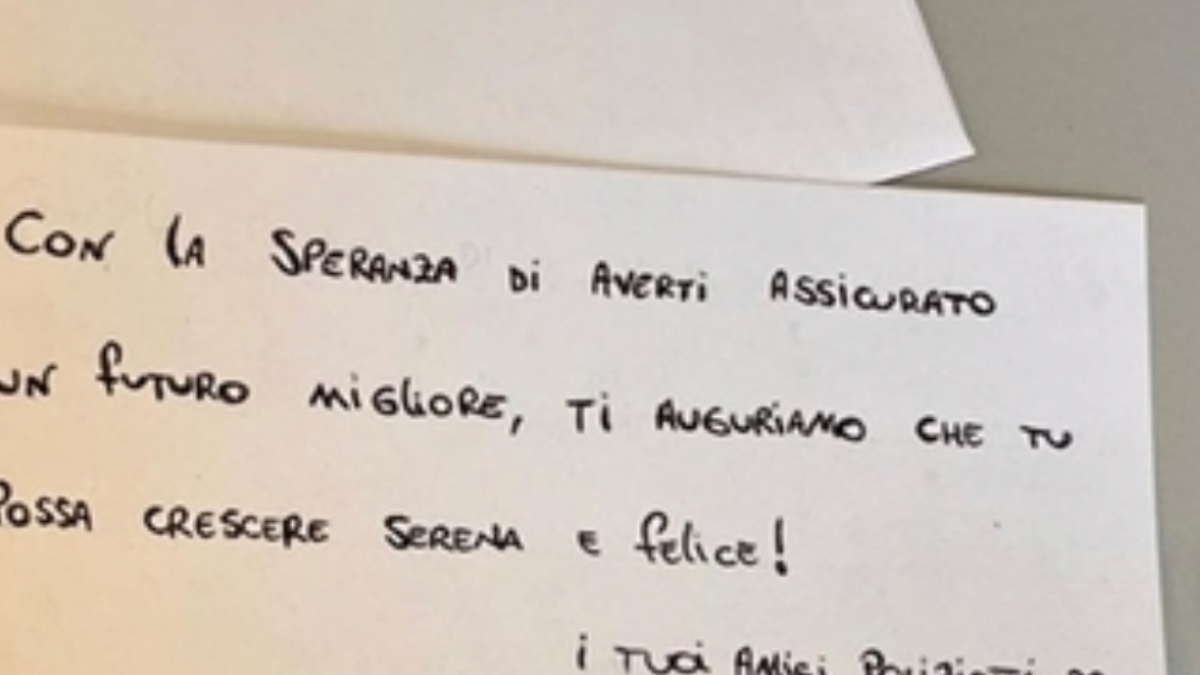 CON LA SPERANZA Di AVERTi ASSiCURATO
UN fUTURO MiGLiORE, Ti AUGURiAMO CHE TU
POSSA CRESCERE SERENA E felice!
i TUOi AMiCi POLiZiOTTi